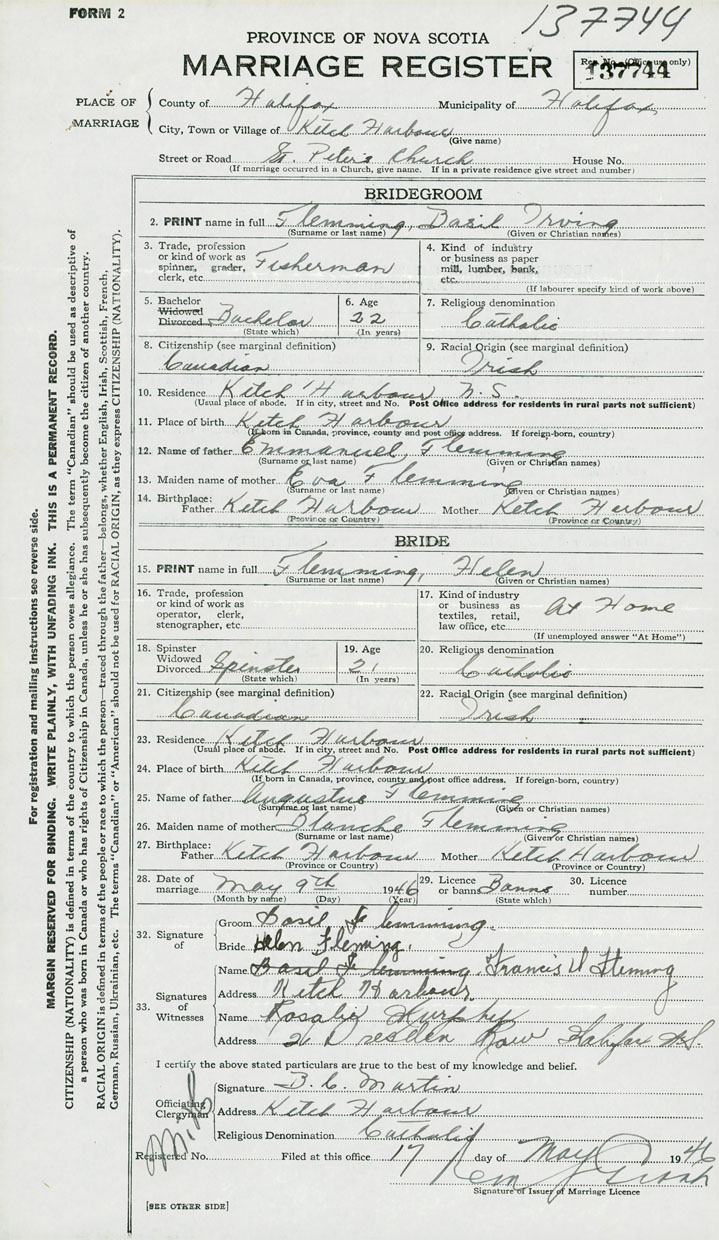 FORM 2
137744
PROVINCE OF NOVA SCOTIA
MARRIAGE REGISTER
Reg. No. (Office use only)
137744
PLACE OF MARRIAGE
County of Halifax Municipality of Halifax
City, Town or Village of Ketch Harbour
(Give name)
Street or Road St. Peter's Church House No.
(If marriage occurred in a Church, give name. If in a private residence give street and number)
BRIDEGROOM
2. PRINT name in full Flemming, Basil Irving
(Surname or last name) (Given or Christian names)
3. Trade, profession or kind of work as spinner, grader, clerk, etc. Fisherman
4. Kind of industry or business as paper mill, lumber, bank, etc.
(If labourer specify kind of work above)
5. Bachelor Widowed Divorced Bachelor
(State which)
6. Age 22
(In years)
7. Religious denomination
Catholic
8. Citizenship (see marginal definition)
Canadian
9. Racial Origin (see marginal definition)
Irish
10. Residence Ketch Harbour N.S.
(Usual place of abode. If in city, street and No. Post Office address for residents in rural parts not sufficient)
11. Place of birth Ketch Harbour
(If born in Canada, province, county and post office address. If foreign-born, country)
12. Name of father Emmanuel Flemming
(Surname or last name) (Given or Christian names)
13. Maiden name of mother Eva Flemming
(Surname or last name) (Given or Christian names)
14. Birthplace: Father Ketch Harbour Mother Ketch Harbour
(Province or Country) (Province or Country)
BRIDE
15. PRINT name in full Flemming, Helen
(Surname or last name) (Given or Christian names)
16. Trade, profession or kind of work as operator, clerk, stenographer, etc.
17. Kind of industry or business as textiles, retail, law office, etc. At Home
(If unemployed answer "At Home")
18. Spinster Widowed Divorced Spinster
(State which)
19. Age 21
(In years)
20. Religious denomination
Catholic
21. Citizenship (see marginal definition)
Canadian
22. Racial Origin (see marginal definition)
Irish
23. Residence Ketch Harbour
(Usual place of abode. If in city, street and No. Post Office address for residents in rural parts not sufficient)
24. Place of birth Ketch Harbour
(If born in Canada, province, county and post office address. If foreign-born, country)
25. Name of father Augustus Flemming
(Surname or last name) (Given or Christian names)
26. Maiden name of mother Blanche Flemming
(Surname or last name) (Given or Christian names)
27. Birthplace: Father Ketch Harbour Mother Ketch Harbour
(Province or Country) (Province or Country)
28. Date of marriage May 9th 1946
(Month by name) (Day) (Year)
29. Licence or banns Banns
(State which)
30. Licence number
32. Signature of
Groom Basil Flemming.
Bride Helen Fleming.
33. Signatures of Witnesses
Name Basil Flemming Francis W Fleming
Address Ketch Harbour
Name Rosalie Murphy
Address 26 Dresden Row Halifax N.S.
I certify the above stated particulars are true to the best of my knowledge and belief.
Officiating Clergyman
Signature B. C. Martin
Address Ketch Harbour
Religious Denomination Catholic
Registered No. Filed at this office 17 day of May 1946
Signature of Issuer of Marriage Licence
[SEE OTHER SIDE]
For registration and mailing instructions see reverse side.
MARGIN RESERVED FOR BINDING. WRITE PLAINLY, WITH UNFADING INK. THIS IS A PERMANENT RECORD.
CITIZENSHIP (NATIONALITY) is defined in terms of the country to which the person owes allegiance. The term "Canadian" should be used as descriptive of
a person who was born in Canada or who has rights of Citizenship in Canada, unless he or she has subsequently become the citizen of another country.
RACIAL ORIGIN is defined in terms of the people or race to which the person—traced through the father—belongs, whether English, Irish, Scottish, French,
German, Russian, Ukrainian, etc. The terms "Canadian" or "American" should not be used for RACIAL ORIGIN, as they express CITIZENSHIP (NATIONALITY).